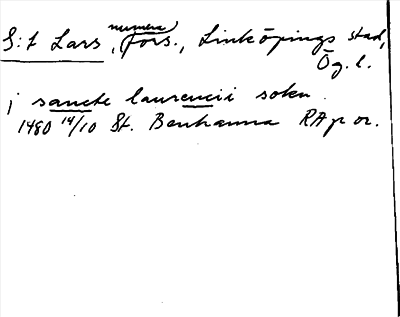 numera
S:t Lars, förs., Linköpings stad,
Ög. l.
j sancte laurencii sokn
1480 14/10 St. Benhamra RAp or.